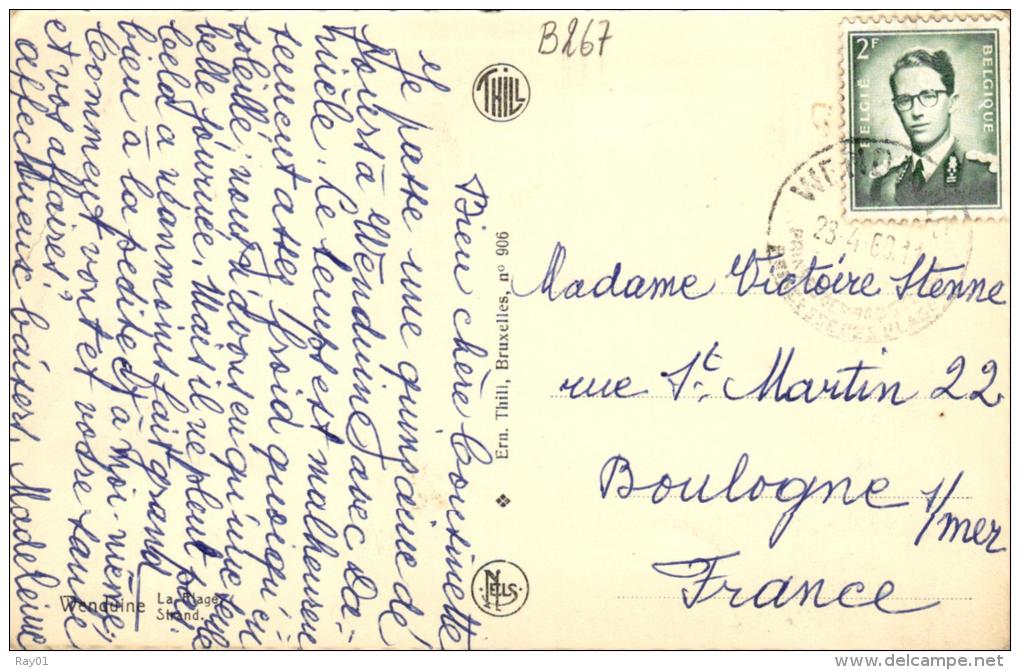 B267
THILL
2F
BELGIË
BELGIQUE
28-4
Bien chère Cousinette
Je passe une quinzaine de
jours à Wenduine avec la
nièle. Le temps est malheureu-
sement assez froid quoiqu'en-
soleillé, nous n'avons eu qu'une seule
belle journée. Mais il ne pleut pas.
Cela a néanmoins fait grand
bien à la petite D. à moi-même.
Comment vont et votre santé
et vos affaires?
affectueux baisers, Madeleine
Ern. Thill, Bruxelles, nº 906
NELS
Wenduine
La Plage
Strand.
Madame Victoire Stenne
rue St. Martin 22
Boulogne s/mer
France
Ray01
http://www.delcampe.net